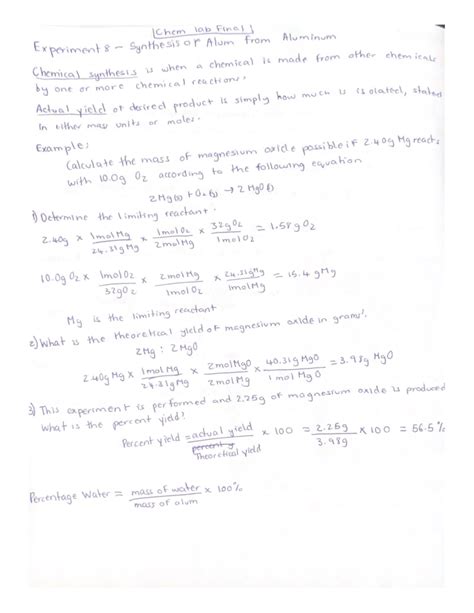 Chem lab Final
Experiment 8 - Synthesis of Alum from Aluminum
Chemical synthesis is when a chemical is made from other chemicals
by one or more chemical reactions.
Actual yield of desired product is simply how much is isolated, stated
in either mass units or moles.
Example:
Calculate the mass of magnesium oxide possible if 2.40g Mg reacts
with 10.0g O₂ according to the following equation
2Mg(s) + O₂(g) → 2MgO(s)
1) Determine the limiting reactant.
2.40g × 1molMg/24.31gMg × 1molO₂/2molMg × 32gO₂/1molO₂ = 1.58gO₂
10.0gO₂ × 1molO₂/32gO₂ × 2molMg/1molO₂ × 24.31gMg/1molMg = 15.4gMg
Mg is the limiting reactant
2) What is the theoretical yield of magnesium oxide in grams?
2Mg : 2MgO
2.40gMg × 1molMg/24.31gMg × 2molMgO/2molMg × 40.31gMgO/1molMgO = 3.98gMgO
3) This experiment is performed and 2.25g of magnesium oxide is produced
What is the percent yield?
Percent yield = actual yield/Theoretical yield × 100 = 2.25g/3.98g × 100 = 56.5%
Percentage Water = mass of water/mass of alum × 100%